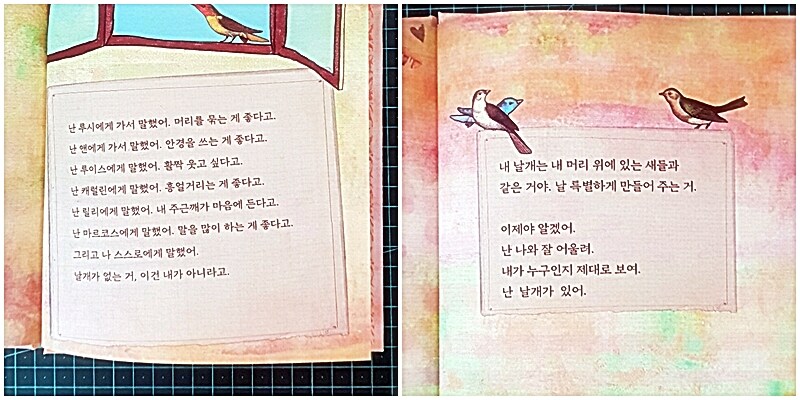 난 루시에게 가서 말했어. 머리를 묶는 게 좋다고.
난 앤에게 가서 말했어. 안경을 쓰는 게 좋다고.
난 루이스에게 말했어. 활짝 웃고 싶다고.
난 캐럴린에게 말했어. 흥얼거리는 게 좋다고.
난 릴리에게 말했어. 내 주근깨가 마음에 든다고.
난 마르코스에게 말했어. 말을 많이 하는 게 좋다고.
그리고 나 스스로에게 말했어.
날개가 없는 거, 이건 내가 아니라고.
내 날개는 내 머리 위에 있는 새들과
같은 거야. 날 특별하게 만들어 주는 거.
이제야 알겠어.
난 나와 잘 어울려.
내가 누구인지 제대로 보여.
난 날개가 있어.